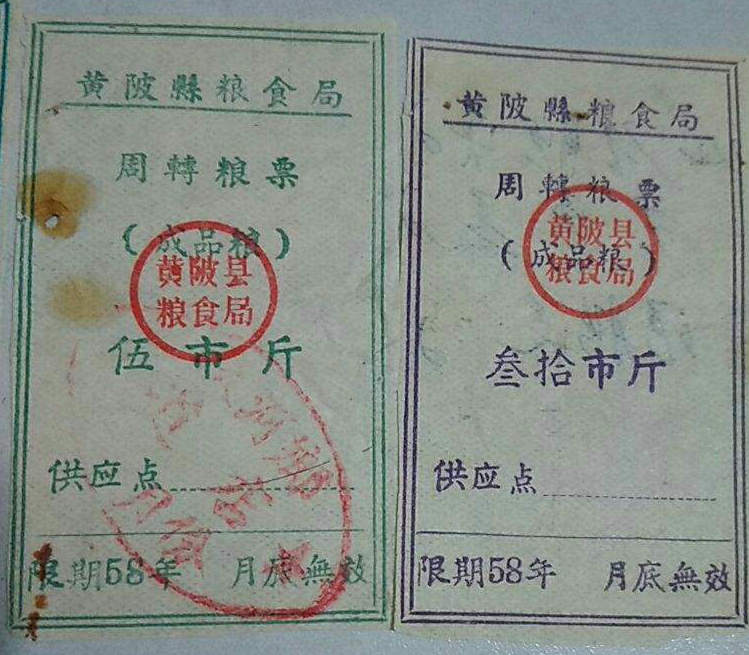 黄陂縣粮食局
周轉粮票
(成品粮)
黄陂县
粮食局
伍市斤
供应点
限期58年 月底無效
黄陂縣粮食局
周轉粮票
(成品粮)
黄陂县
粮食局
叁拾市斤
供应点
限期58年 月底無效